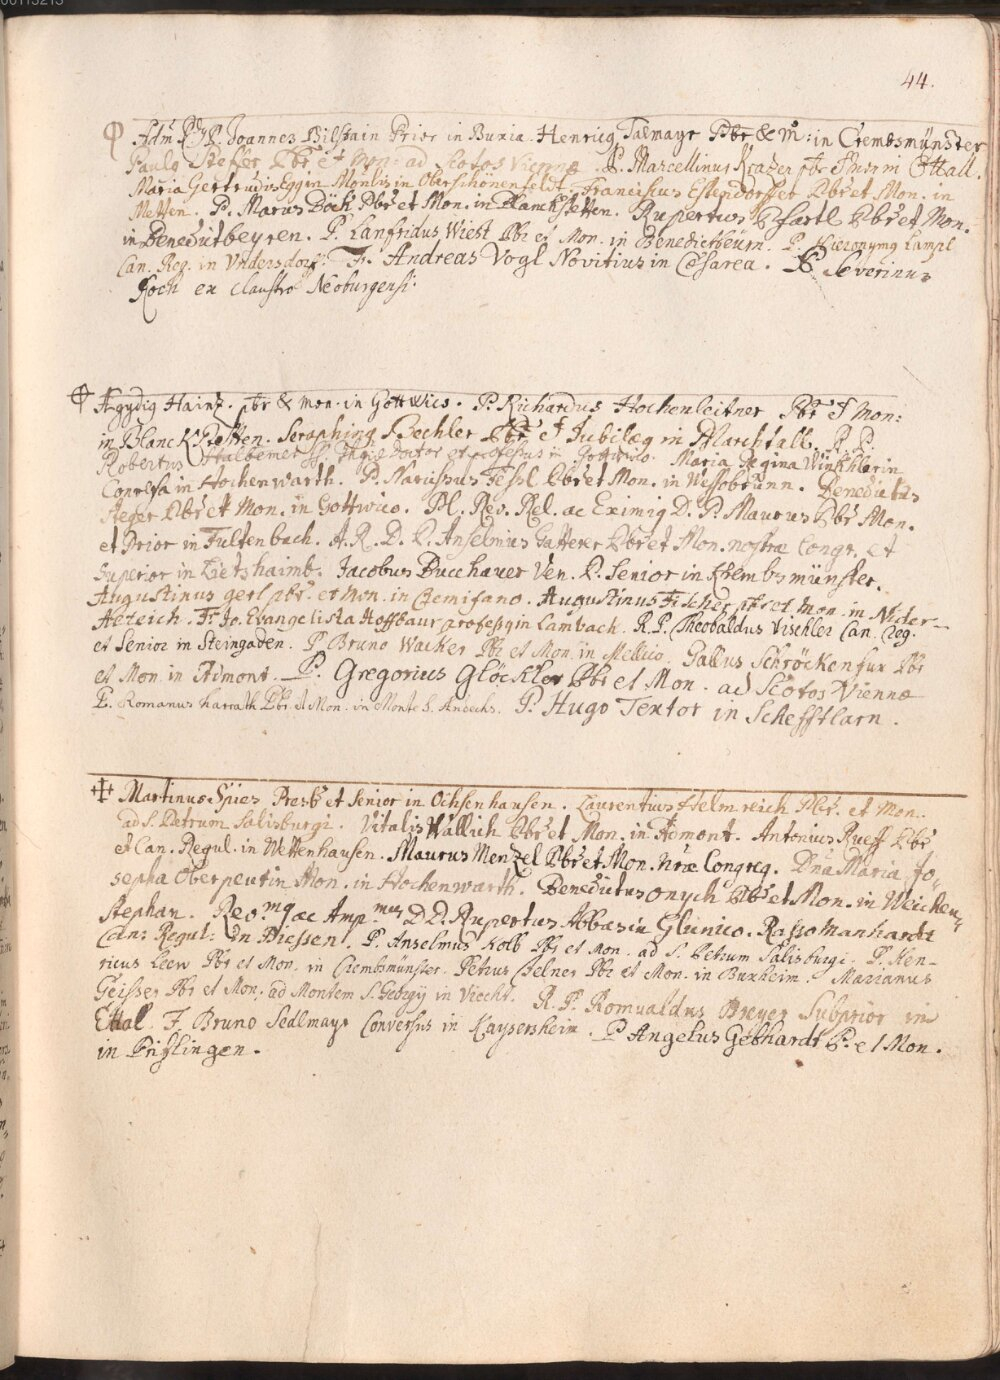 44.
Adm. R. P. Joannes Bilstain Prior in Buxia. Henricq Talmayr Pbr & M: in Crembsmünster
Paulq Steffer Pbr et Mon: ad Scotos Viennæ. P. Marcellinus Krazer pbr & mon in Ettall.
Maria Gertrudis Eggin Monlis in Oberschönenfeldt. Franciscus Estendorffer Pbr et Mon. in
Metten. P. Marus Böck Pbr et Mon. in Planckstetten. Rupertus Pfartl Pbr et Mon.
in Benedictbeyren. P. Lanfridus Wiest Pbr et Mon. in Benedictbeürn. P. Hieronymq Lampl
Can. Reg. in Vndersdorf. Fr. Andreas Vogl Novitius in Cæsarea. P. Severinus
Koch ex claustro Neoburgensi.
Ægydiq Hainz. pbr & mon. in Gottwics. P. Richardus Hochenleitner Pbr et Mon:
in Blanckstetten. Seraphinq Bechler Pbr et Jubilæq in Marchtall. R. P.
Robertus Stalbemer SS. Theolg Doctor et professus in Gottwico. Maria Regina Winkhlerin
Conversa in Hochenwarth. P. Narcissus Fessl Pbr et Mon. in Wessobrunn. Benedictus
Steger Pbr et Mon. in Gottwico. Pl. Rev. Rel. ac Eximiq D. P. Maurus Pbr Mon.
et Prior in Fultenbach. A. R. D. P. Anselmus Gatterer Pbr et Mon. nostræ Congr. et
Superior in Lietzhaimb. Jacobus Buechauer Ven. P. Senior in Krembsmünster.
Augustinus gerl pbr. et Mon. in Cremifano. Augustinus Fischer pbr et Mon. in Nider-
Alteich. Fr. Jo. Evangelista Hoffbaur professq in Lambach. R. P. Theobaldus Vischler Can. Reg.
et Senior in Steingaden. P. Bruno Wacker Pbr et Mon. in Mellico. Gallus Schröckenfux Pbr
et Mon. in Admont. P. Gregorius Glöckler Pbr et Mon. ad Scotos Viennæ
P. Romanus harrath Pbr. et Mon. in Monte S. Andechs. P. Hugo Textor in Schefftlarn.
Martinus Spies Presb et Senior in Ochsenhausen. Laurentius Helmreich Pbr. et Mon.
ad S. Petrum Salisburgi. Vitalis Wallich Pbr et Mon. in Admont. Antonius Rueff Pbr
et Can. Regul. in Wettenhausen. Maurus Menzel Pbr et Mon. nræ Congreg. Dna Maria Jo-
sepha Oberpeurin Mon. in Hochenwarth. Benedictus onych Pbr et Mon. in Weichen-
stephan. Reomq ac Ampmus D. D. Rupertus Abbas in Glunico. Rasso Manhardt
Can: Regul: in Diessen. P. Anselmus Kolb Pbr et Mon. ad S. Petrum Salisburgi. P. Hen-
ricus Leew Pbr et Mon. in Crembsmünster. Petrus Helner Pbr et Mon. in Buxheim. Marianus
Geisser Pbr et Mon: ad Montem S. Georgij in Viecht. R. P. Romualdus Breyer Subprior in
Ettal. F. Bruno Sedlmayr Conversus in Kaysersheim. P Angelus Gebhardt P. et Mon.
in Prislingen.